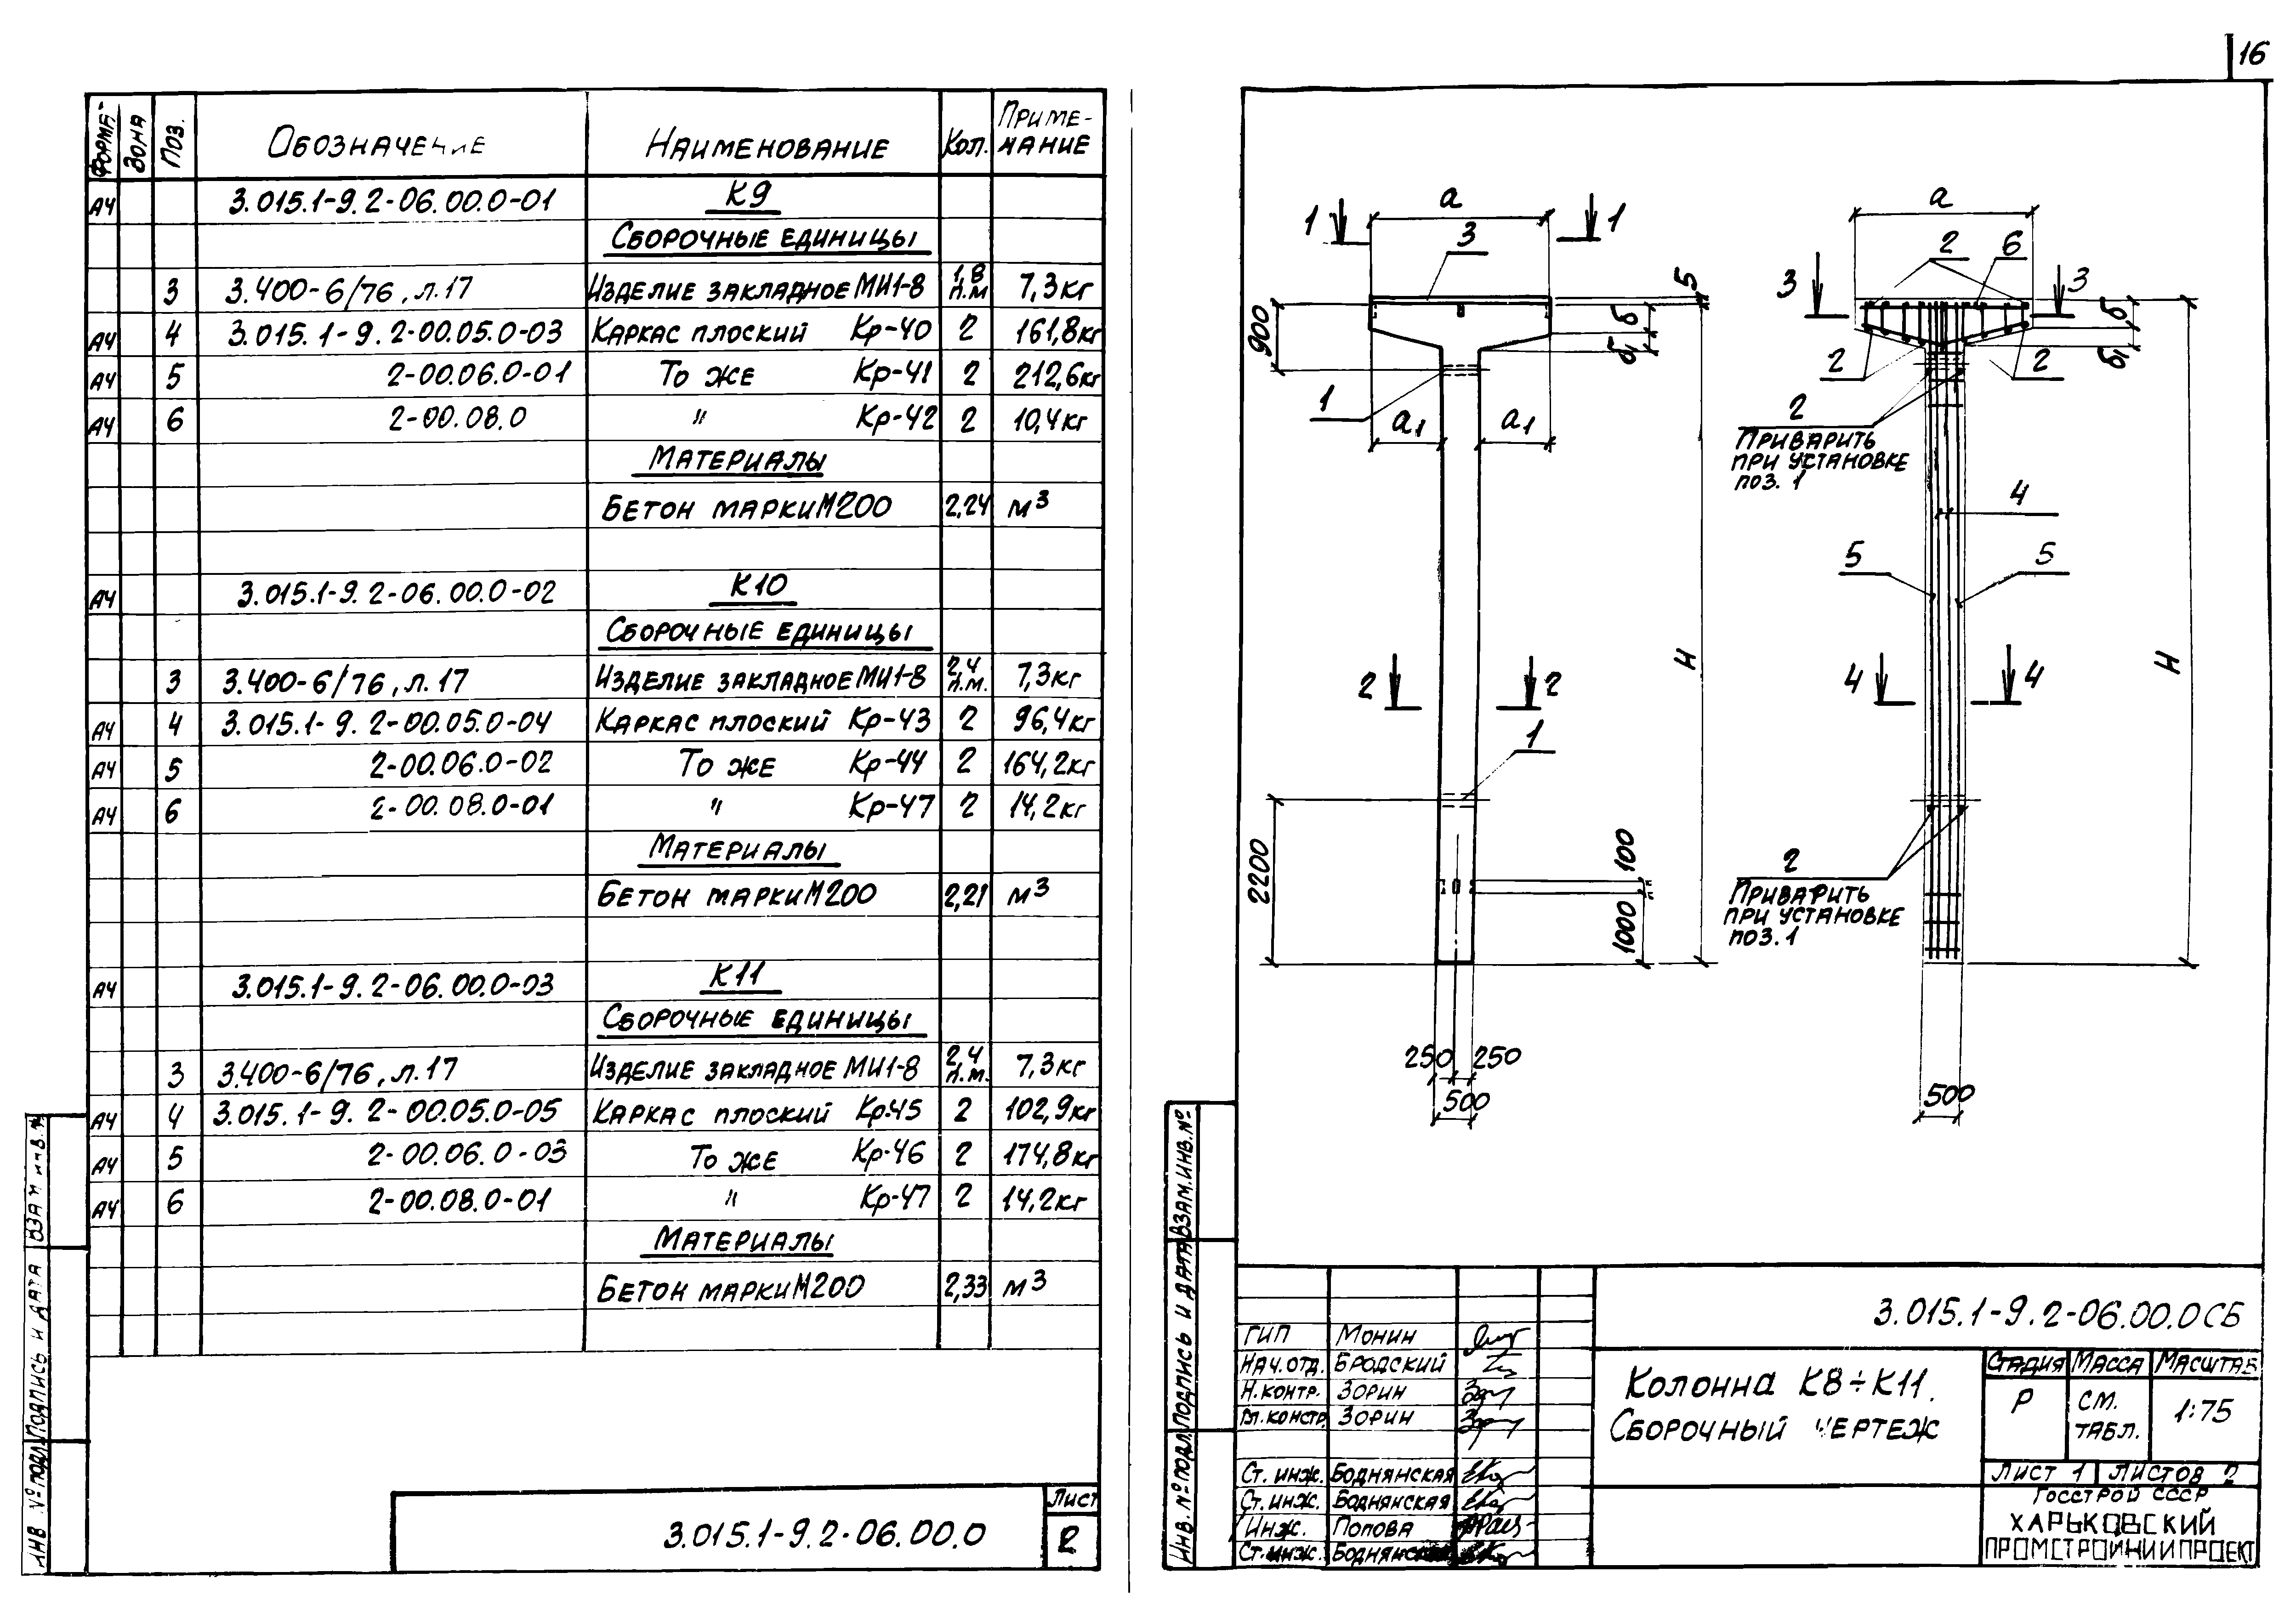 16
ФОРМА-
ЗОНА
ПОЗ.
ОБОЗНАЧЕНИЕ
НАИМЕНОВАНИЕ
КОЛ.
ПРИМЕ-
ЧАНИЕ
А4 3.015.1-9.2-06.00.0-01 К9
СБОРОЧНЫЕ ЕДИНИЦЫ
3 3.400-6/76, л.17 ИЗДЕЛИЕ ЗАКЛАДНОЕ МИ1-8 1,8 п.м 7,3кг
А4 4 3.015.1-9.2-00.05.0-03 КАРКАС ПЛОСКИЙ Кр-40 2 161,8кг
А4 5 2-00.06.0-01 ТО ЖЕ Кр-41 2 212,6кг
А4 6 2-00.08.0 " Кр-42 2 10,4кг
МАТЕРИАЛЫ
БЕТОН МАРКИ М200 2,24 м³
А4 3.015.1-9.2-06.00.0-02 К10
СБОРОЧНЫЕ ЕДИНИЦЫ
3 3.400-6/76, л.17 ИЗДЕЛИЕ ЗАКЛАДНОЕ МИ1-8 2,4 п.м. 7,3кг
А4 4 3.015.1-9.2-00.05.0-04 КАРКАС ПЛОСКИЙ Кр-43 2 96,4кг
А4 5 2-00.06.0-02 ТО ЖЕ Кр-44 2 164,2кг
А4 6 2-00.08.0-01 " Кр-47 2 14,2кг
МАТЕРИАЛЫ
БЕТОН МАРКИ М200 2,21 м³
А4 3.015.1-9.2-06.00.0-03 К11
СБОРОЧНЫЕ ЕДИНИЦЫ
3 3.400-6/76, л.17 ИЗДЕЛИЕ ЗАКЛАДНОЕ МИ1-8 2,4 п.м. 7,3кг
А4 4 3.015.1-9.2-00.05.0-05 КАРКАС ПЛОСКИЙ Кр-45 2 102,9кг
А4 5 2-00.06.0-03 ТО ЖЕ Кр-46 2 174,8кг
А4 6 2-00.08.0-01 " Кр-47 2 14,2кг
МАТЕРИАЛЫ
БЕТОН МАРКИ М200 2,33 м³
ИНВ № ПОДЛ. ПОДПИСЬ И ДАТА ВЗАМ ИНВ.№
3.015.1-9.2-06.00.0
ЛИСТ
2
1 а 1
3
5
900
б
б1
1
а1 а1
Н
2 2
1
2200
100
1000
250 250
500
а
2 6
3 3
б
б1
2 2
2
ПРИВАРИТЬ
ПРИ УСТАНОВКЕ
ПОЗ. 1
4
5 5
Н
4 4
2
ПРИВАРИТЬ
ПРИ УСТАНОВКЕ
ПОЗ. 1
500
ИНВ. № ПОДЛ. ПОДПИСЬ И ДАТА ВЗАМ.ИНВ.№
3.015.1-9.2-06.00.0СБ
ГИП МОНИН
НАЧ.ОТД. БРОДСКИЙ
Н.КОНТР. ЗОРИН
ГЛ.КОНСТР. ЗОРИН
СТ. ИНЖ. БОДНЯНСКАЯ
СТ. ИНЖ. БОДНЯНСКАЯ
ИНЖ. ПОПОВА
СТ.ИНЖ.
КОЛОННА К8÷К11.
СБОРОЧНЫЙ ЧЕРТЕЖ
СТАДИЯ МАССА МАСШТАБ
Р СМ. ТАБЛ. 1:75
ЛИСТ 1 ЛИСТОВ 2
ГОССТРОЙ СССР
ХАРЬКОВСКИЙ
ПРОМСТРОЙНИИПРОЕКТ